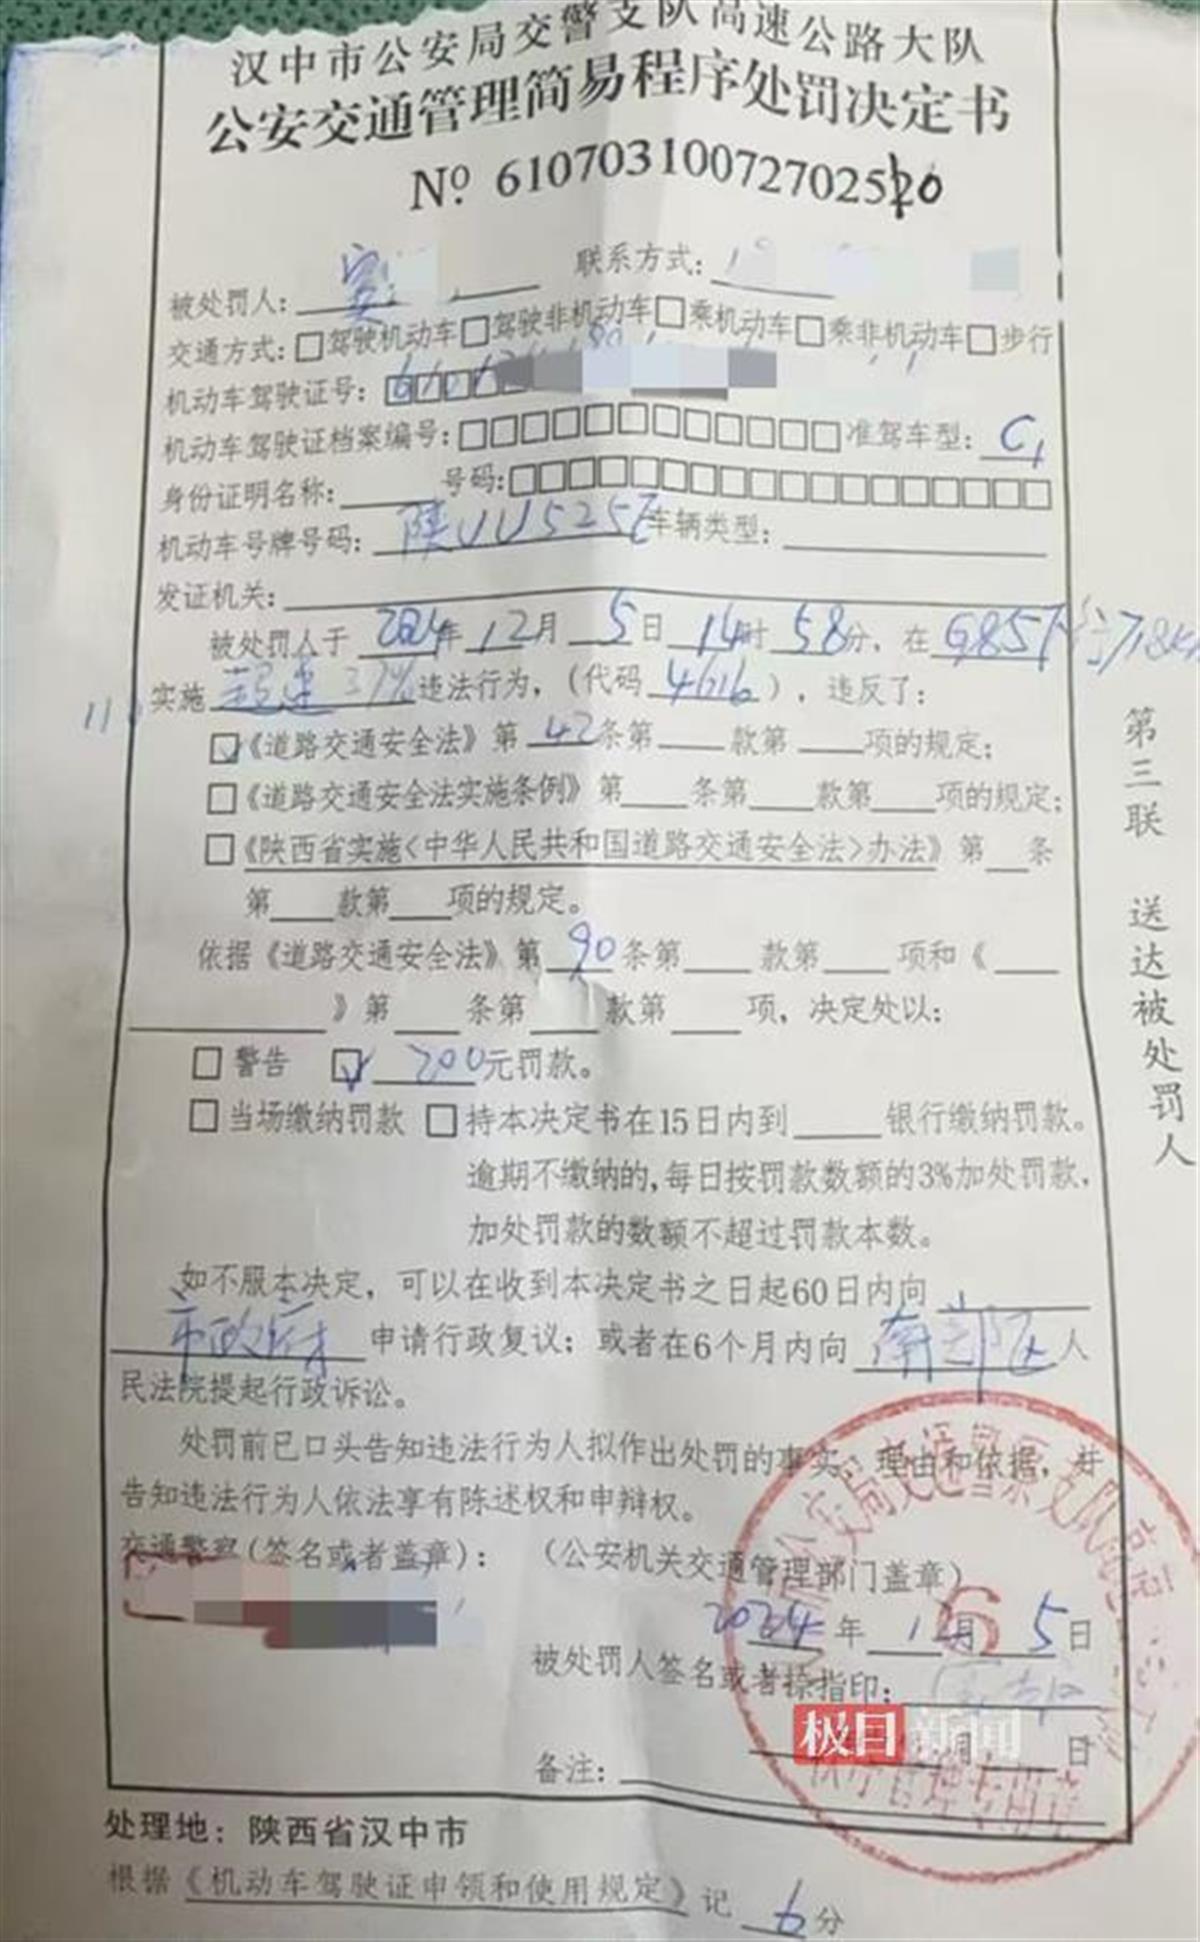 汉中市公安局交警支队高速公路大队
公安交通管理简易程序处罚决定书
№ 610703100727025
被处罚人: 联系方式:
交通方式:□驾驶机动车□驾驶非机动车□乘机动车□乘非机动车□步行
机动车驾驶证号:
机动车驾驶证档案编号:□□□□□□□□□□□□ 准驾车型: C1
身份证明名称: 号码:□□□□□□□□□□□□□□□□□□
机动车号牌号码: 陕UU525 车辆类型:
发证机关:
被处罚人于 2024年 12月 5日 14时 58分, 在 G85下行
实施 超速37% 违法行为, (代码 ), 违反了:
☑《道路交通安全法》第 42 条第 款第 项的规定;
□《道路交通安全法实施条例》第 条第 款第 项的规定;
□《陕西省实施<中华人民共和国道路交通安全法>办法》第 条
第 款第 项的规定。
依据《道路交通安全法》第 90 条第 款第 项和《
》第 条第 款第 项, 决定处以:
□ 警告 ☑ 200元罚款。
□ 当场缴纳罚款 □ 持本决定书在15日内到 银行缴纳罚款。
逾期不缴纳的,每日按罚款数额的3%加处罚款,
加处罚款的数额不超过罚款本数。
如不服本决定, 可以在收到本决定书之日起60日内向
市政府 申请行政复议; 或者在6个月内向 南郑区 人
民法院提起行政诉讼。
处罚前已口头告知违法行为人拟作出处罚的事实、理由和依据, 并
告知违法行为人依法享有陈述权和申辩权。
交通警察(签名或者盖章): (公安机关交通管理部门盖章)
2024 年 12月 5 日
被处罚人签名或者捺指印:
月 日
极目新闻
备注:
处理地: 陕西省汉中市
根据《机动车驾驶证申领和使用规定》记 6 分
第三联 送达被处罚人